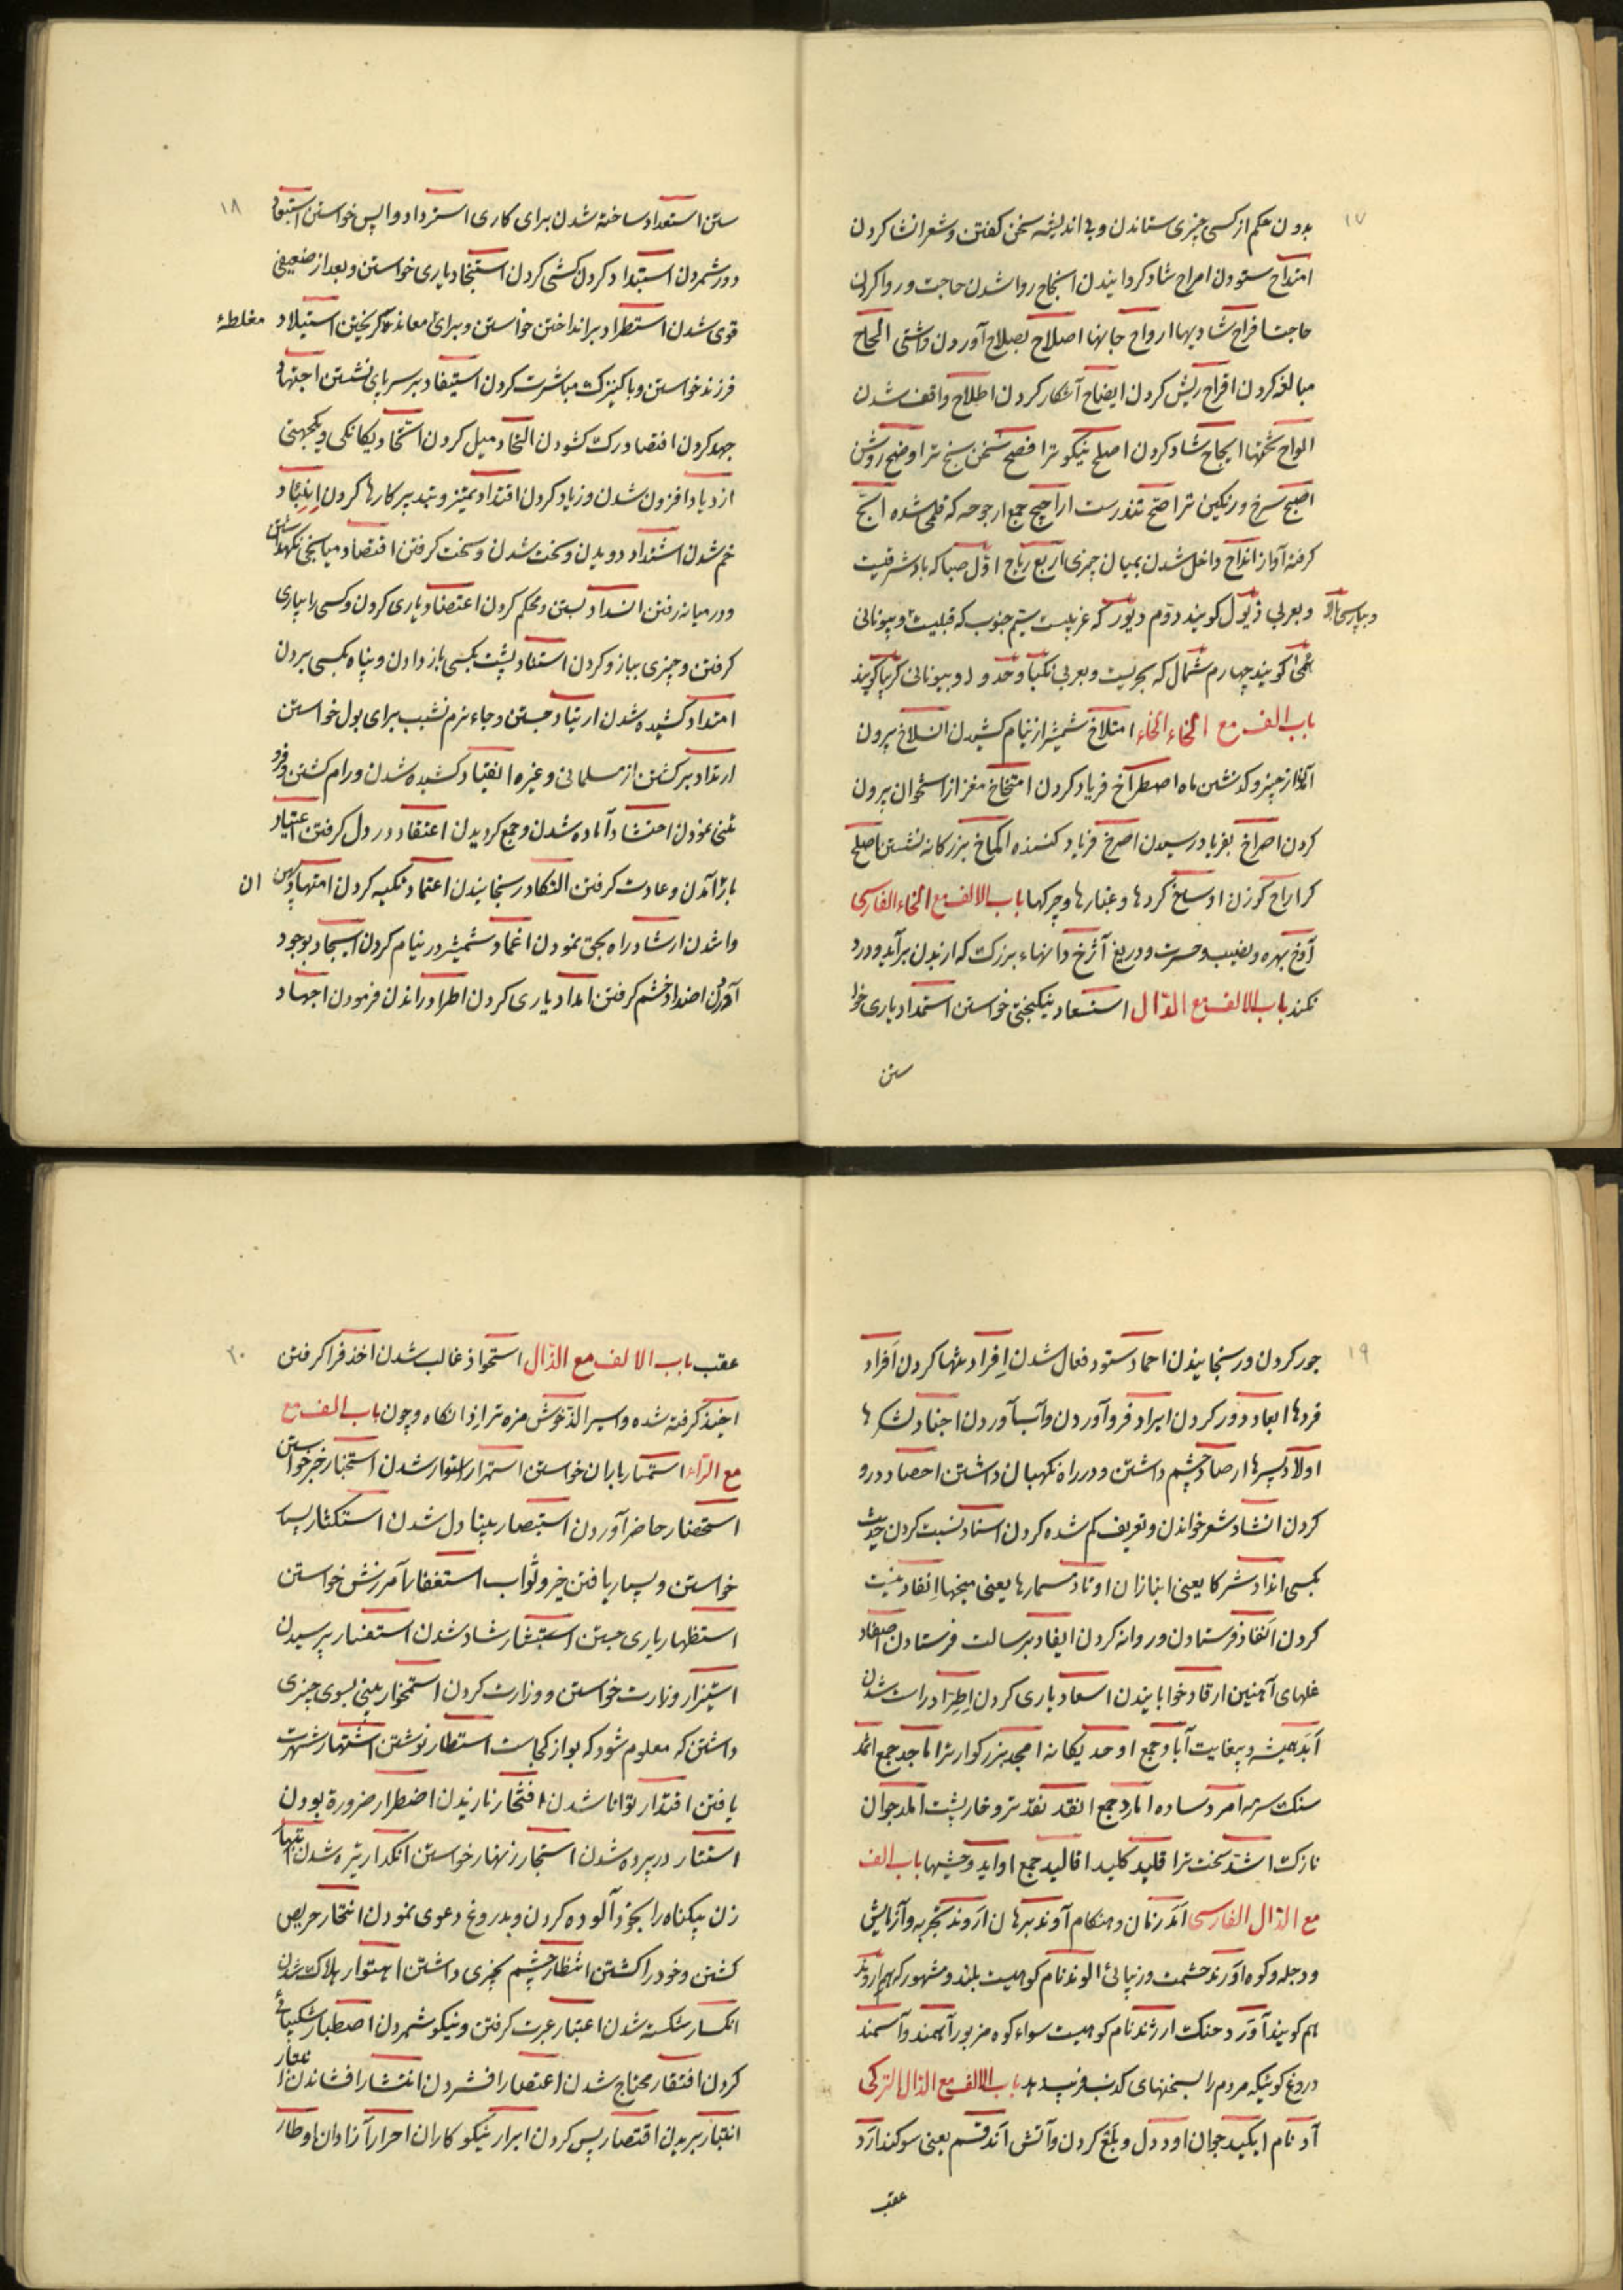 ١٧
بدون حکم از کسی چیزی ستاندن و بی اندیشه سخن کفتن و شعر انشا کردن
امتداح ستودن امراح شاد کردانیدن انجاح روا شدن حاجت و روا کردن
حاجت افراح شادیها ارواح جانها اصلاح بصلاح آوردن و آشتی الحاح
مبالغه کردن اقراح ریش کردن ایضاح آشکار کردن اطلاح واقف شدن
الواح تختها ابجاح شاد کردن اصلح نیکوتر افصح سخن سنج تر اوضح روشن
اصبح سرخ و رنکین تر اصح تندرست اراجیح جمع ارجوحه که قلمی شده ابح
کرفته آواز انداح داخل شدن بمیان چیزی اربع ریاح اوّل صبا که باد شرقیست
وبعربی ذیول کویند دوم دیور که غربیست سیم جنوب که قبلیست و بیونانی
و بپارسی بالا
عجمی کویند چهارم شمال که بحریست و بعربی نکبا و حدو و بیونانی کرپا کویند
باب الف مع الخاء الخاء امتلاخ شمشیر از نیام کشیدن انسلاخ بیرون
آمدن از چیز و کذشتن ماه اصطراخ فریاد کردن امتخاخ مغز از استخوان بیرون
کردن اصراخ بفریاد رسیدن اصرخ فریاد کننده اکماخ بزرکانه نشستن اصلح
کر اراخ کوزن اوساخ کردها و غبارها و چرکها باب الالف مع الخاء الفارسی
آوخ بهره و نصیب و حسرت و دریغ آژخ دانهاء بزرک که از بدن برآید و درد
نکند باب الالف مع الدّال استسعاد نیکبختی خواستن استمداد یاری خوا
ستن
١٨
ستن استعداد ساخته شدن برای کاری استرداد واپس خواستن استبعاد
دور شمردن استبداد کردن کشی کردن استنجاد یاری خواستن و بعد از ضعیفی
قوی شدن استطراد برانداختن خواستن و برای معانده کریختن استیلاد
مغلطهٔ
فرزند خواستن و با کنیزک مباشرت کردن استیفاد بر سر پای نشستن اجتهاد
جهد کردن افتصاد رک کشودن التحاد میل کردن اتحاد یکانکی و یکجهتی
ازدیاد افزون شدن و زیاد کردن اقتداد بتمیز و بتدبیر کارها کردن انیئاد
خم شدن اشتداد دویدن و سخت شدن و سخت کرفتن اقتصاد میانجی نکهداشتن
و در میانه رفتن انسداد بستن و محکم کردن اعتضاد یاری کردن و کسی را بیاری
کرفتن و چیزی ببازو کردن استناد پشت بکسی باز دادن و پناه بکسی بردن
امتداد کشیده شدن ارتیاد جستن و جاء نرم نشیب برای بول خواستن
ارتداد برکشتن از مسلمانی و غیره انقیاد کشیده شدن و رام کشتن و فرو
تنی نمودن احتشاد آماده شدن و جمع کردیدن اعتقاد در دل کرفتن اعتیاد
باز آمدن و عادت کرفتن التکاد رسخانیدن اعتماد تکیه کردن امتهاد پهن
ان
وا شدن ارشاد راه بحق نمودن اغماد شمشیر در نیام کردن ایجاد بوجود
آوردن اضداد خشم کرفتن امداد یاری کردن اطراد راندن فرمودن اجهاد
١٩
جور کردن و رسخانیدن احماد ستوده فعال شدن اِفراد تنها کردن اَفراد
فردها ابعاد دور کردن ایراد فرو آوردن و آب آوردن اجناد لشکرها
اولاد پسرها ارصاد چشم داشتن و در راه نکهبان داشتن احصاد درو
کردن انشاد شعر خواندن و تعریف کم شده کردن اسناد نسبت کردن حدیث
بکسی انداد شرکا یعنی انبازان اوتاد مسمارها یعنی میخها اِنفاد نیست
کردن اَنفاد فرستادن و روانه کردن ایفاد برسالت فرستادن اصفاد
غلهای آهنین ارقاد خوابانیدن اسعاد یاری کردن اِطِرّاد راست شدن
اَبَد همیشه و بیغایت آباد جمع اوحد یکانه امجد بزرکوارتر اماجد جمع اثمد
سنک سرمه امرد ساده امارد جمع انقد نقدتر و خارپشت املد جوان
نازک اشدّ سخت تر اقلید کلید اقالید جمع اواید وحشیها باب الف
مع الدال الفارسی اَندَ زمان و هنکام آوند برهان اَروند تجربه و آزمایش
و دجله و کوه آورند حشمت و زیبائی الوند نام کوهیست بلند و مشهور که بهم اروند
هم کویند آورد جنک ارژند نام کوهیست سواء کوه مزبور آهمند و آسمند
دروغ کوئیکه مردم را بسخنهای کذب فریب دهد باب الالف مع الدال الترکی
آد نام ایکید جوان اود دل و بَلغ کردن و آتش اَند قسم یعنی سوکند ارَد
عقب
٢٠
عقب باب الالف مع الذّال استحواذ غالب شدن اخذ فرا کرفتن
اخیذ کرفته شده و اسیر الذّ خوش مزه تر اذ انکاه و چون باب الف مع
مع الرّاء استمطار باران خواستن استمرار استوار شدن استخبار خبر خواستن
استحضار حاضر آوردن استبصار بینا دل شدن استکثار بسیا
خواستن و بسیار یافتن خیر و ثواب استغفار آمرزش خواستن
استظهار یاری جستن استبشار شاد شدن استفسار پرسیدن
استیزار وزارت خواستن و وزارت کردن استمخار بینی بسوی چیزی
داشتن که معلوم شود که بو از کجاست استطار نوشتن اشتهار شهرت
یافتن اقتدار توانا شدن افتخار نازیدن اضطرار ضرورة بودن
استتار در پرده شدن استجار زنهار خواستن انکدار تیره شدن ابتهار
زن بیکناه را بخود آلوده کردن و بدروغ دعوی نمودن انتحار حریص
کشتن و خود را کشتن انتظار چشم بچیزی داشتن اهتوار هلاک شدن
انکسار شکسته شدن اعتبار عبرت کرفتن و نیکو شمردن اصطبار شکیبائی
کردن افتقار محتاج شدن اعتصار افشردن انتشار افشاندن
انتبار بریدن اقتصار بس کردن ابرار نیکو کاران احرار آزادان اوطار